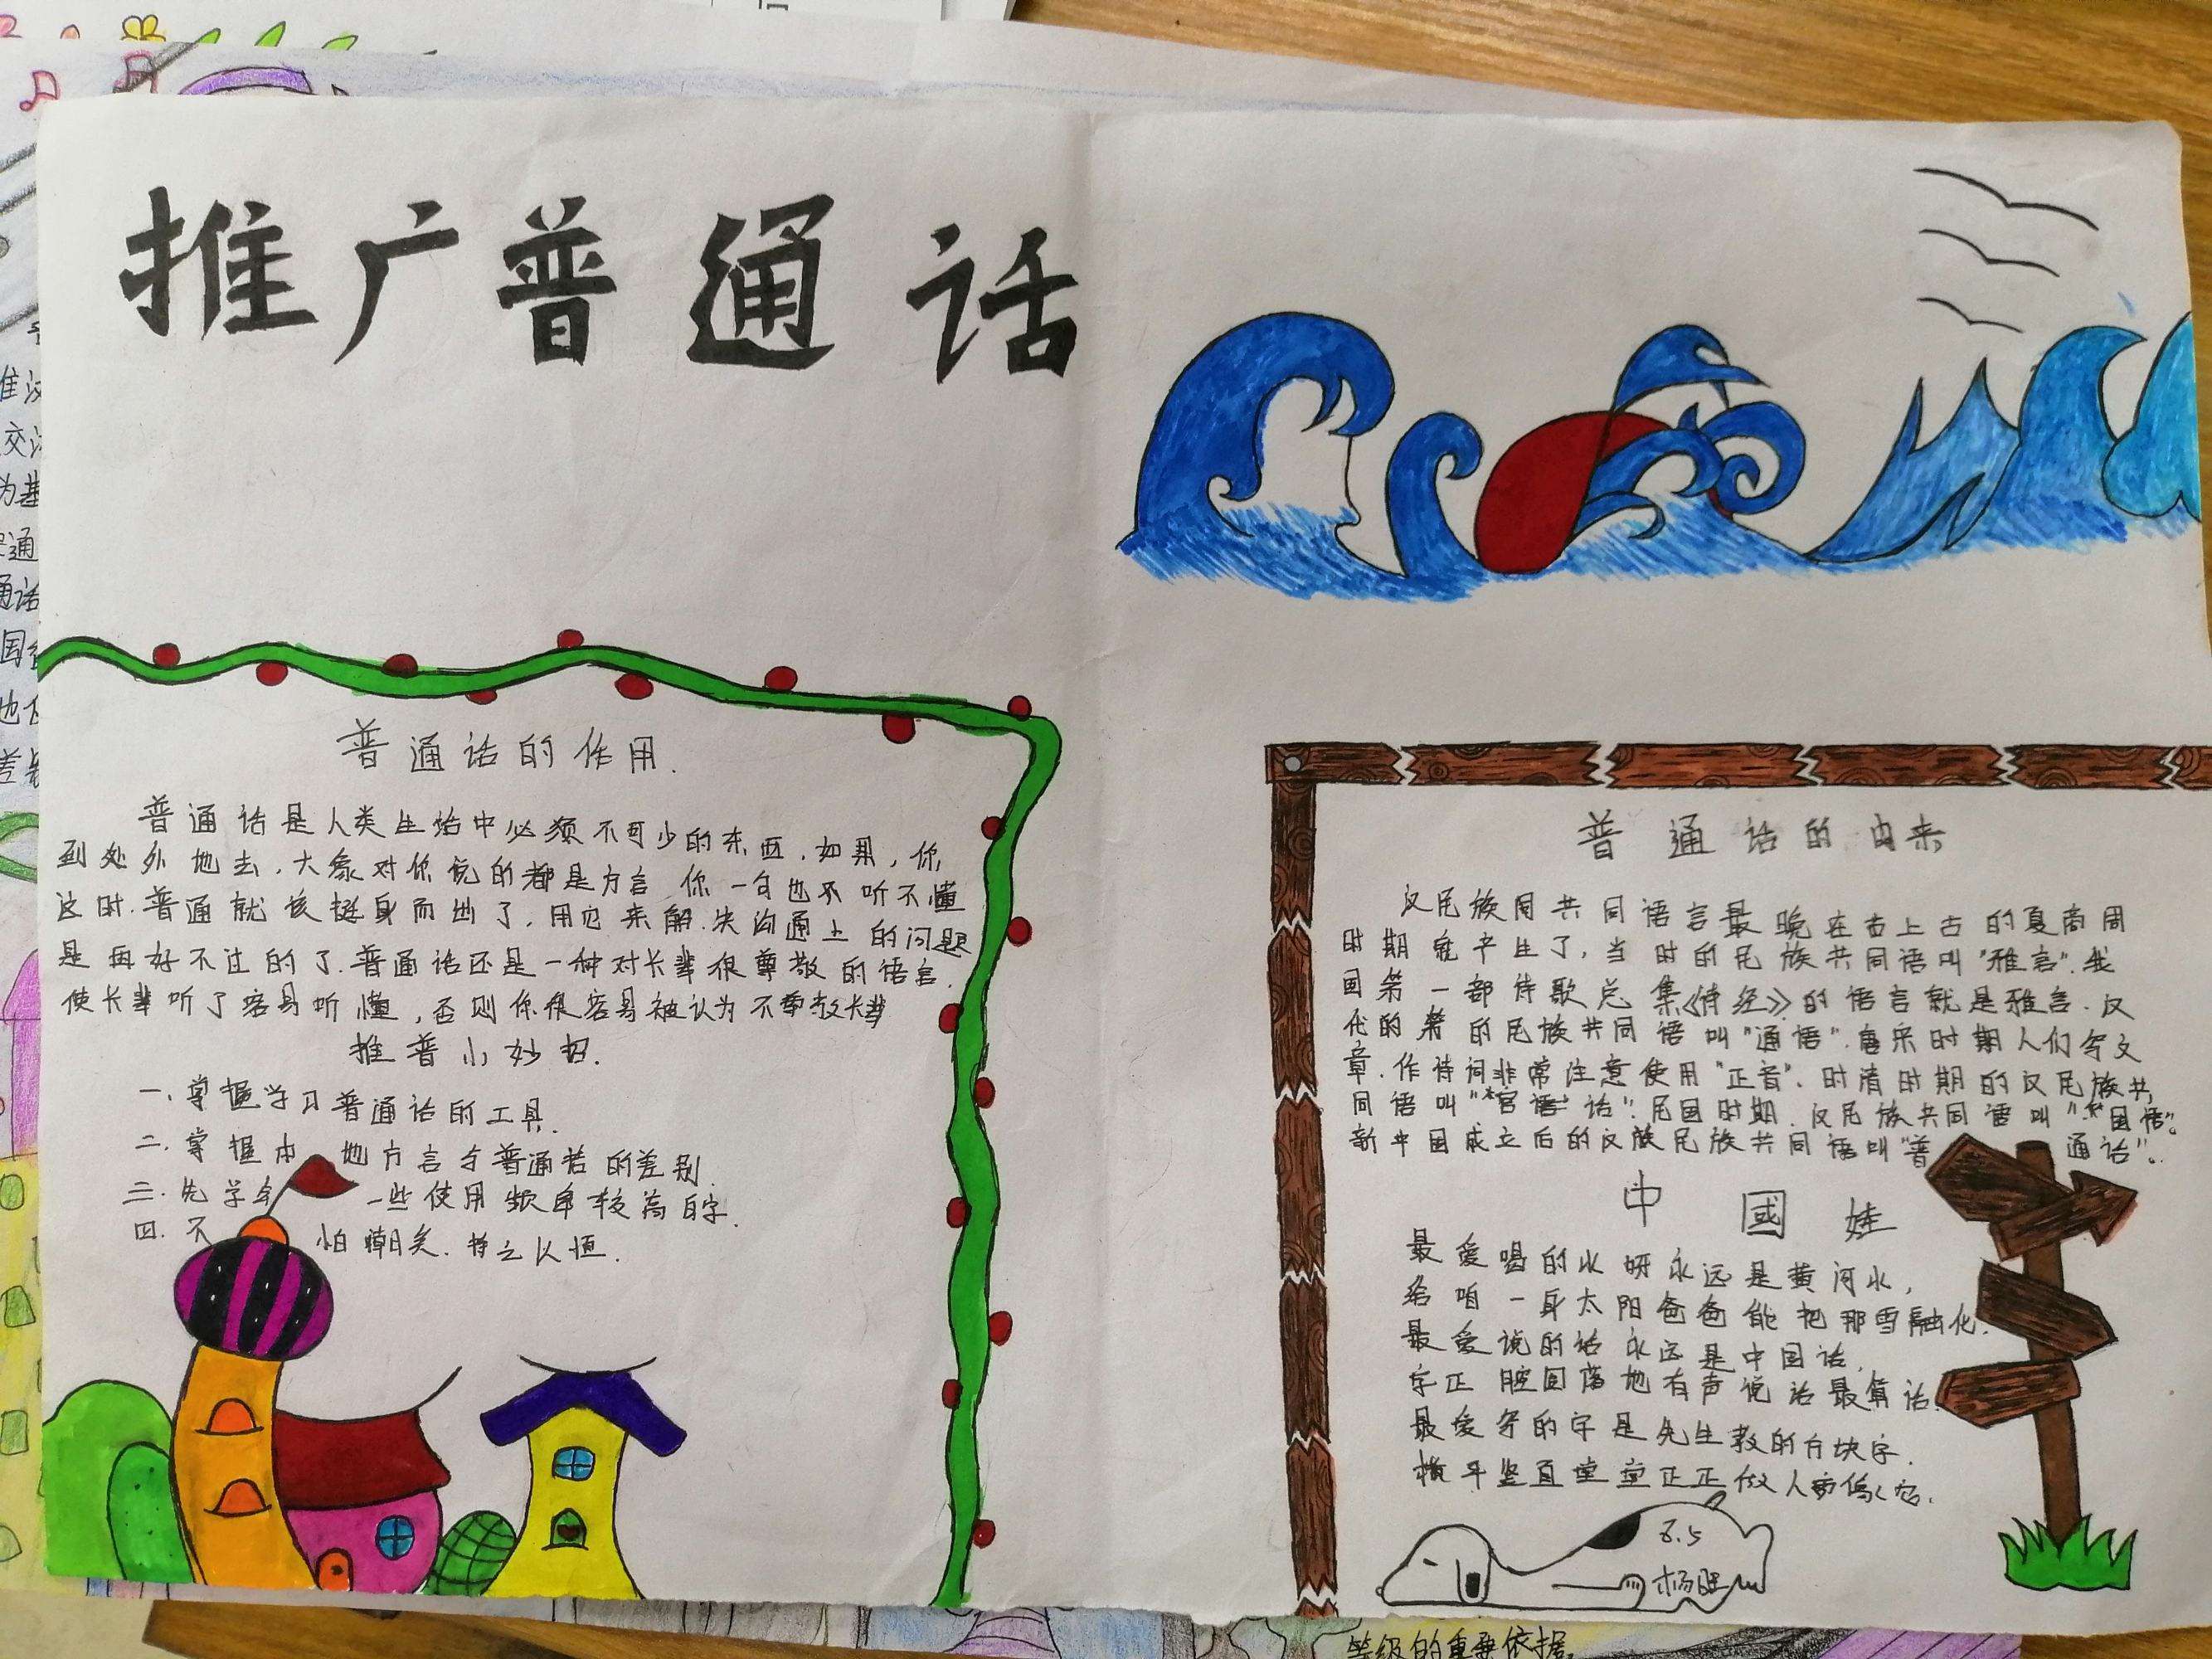 推广普通话
普通话的作用.
普通话是人类生活中必须不可少的东西.如果,你
到处外地去.大家对你说的都是方言 你一句也不听不懂
这时.普通就该挺身而出了,用它来解.失沟通上的问题
是再好不过的了.普通话还是一种对长辈很尊敬的语言.
使长辈听了容易听懂,否则你很容易被认为不尊敬长辈
推普小妙招.
一、掌握学习普通话的工具.
二.掌握本地方言与普通话的差别.
三.先学会一些使用频率较高的字.
四.不怕嘲笑.持之以恒.
普通话的由来
汉民族同共同语言最晚在古上古的夏商周
时期就产生了,当时的民族共同语叫"雅言".我
国第一部诗歌总集《诗经》的语言就是雅言.汉
代的 的民族共同语叫"通语".唐宋时期人们写文
章.作诗词非常注意使用"正音".时清时期的汉民族共
同语叫"官话".民国时期.汉民族共同语叫"国语".
新中国成立后的汉族民族共同语叫"普通话".
中國娃
最爱喝的水 永远是黄河水,
给咱一身太阳爸爸能把那雪融化.
最爱说的话永远是中国话,
字正腔回落地有声说话最算话.
最爱写的字是先生教的方块字.
横平竖直堂堂正正做人 像
6.5
杨旺
等级的重要依据.